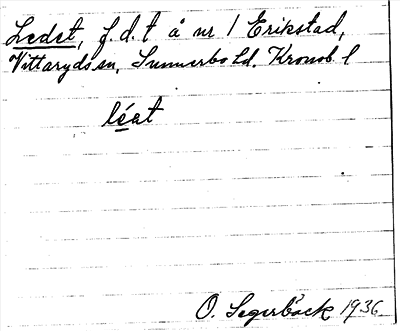 Ledet, f.d.t å nr 1 Erikstad,
Vittaryds sn, Sunnerbo hd. Kronob. l
léat
O. Segerbäck 1936